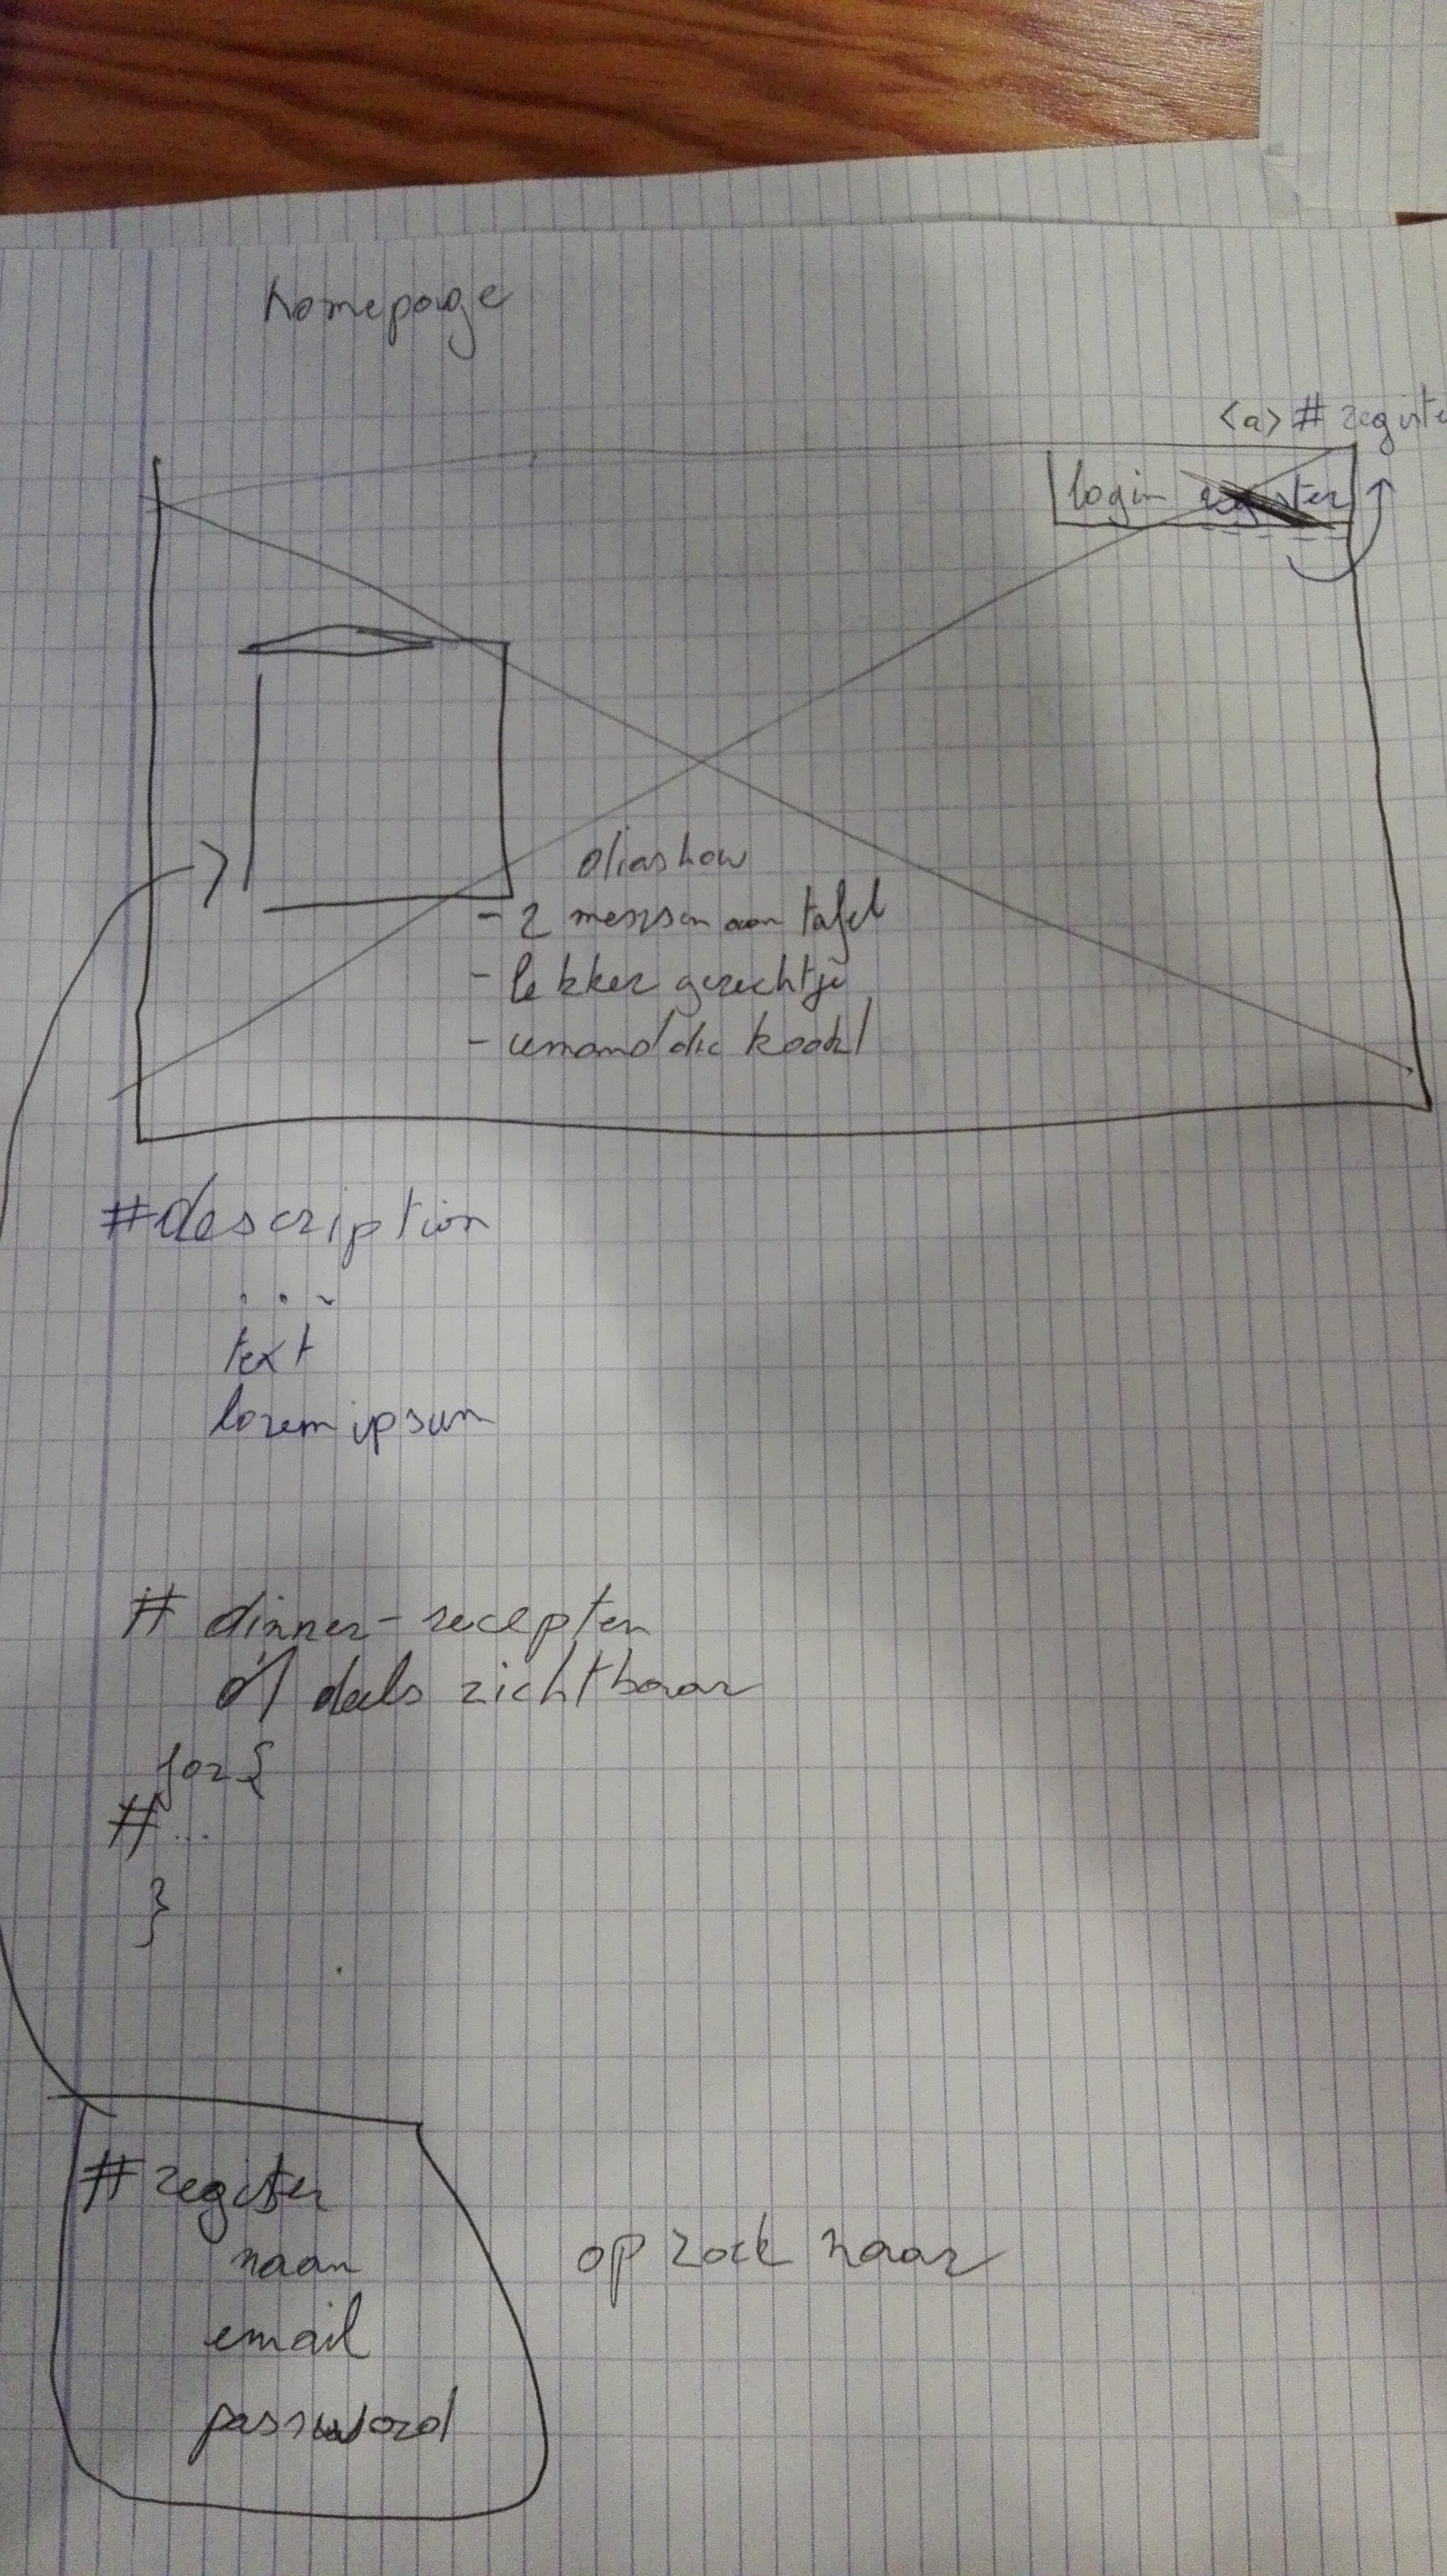 homepage
<a> # registe
login register
diashow
- 2 mensen aan tafel
- lekker gerechtje
- iemand die kookt
#description
...
text
lorem ipsum
# dinner-recepten
of deels zichtbaar
for {
# ...
}
# register
naam
email
password
op zoek naar